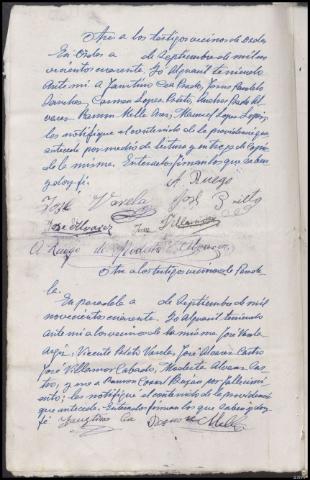 Otra a los testigos vecinos de Ordes
En Ordes a de Septiembre de mil no
vecientos cuarenta. Yo Alguacil teniendo
Ante mi a Faustino Cea Prado, Jesus
Carmen Lopez Prieto,
Ramon Mella Ares, Manuel Lopez Lopez
les notifiqué el contenido de la providencia que
antecede por medio de lectura y entrega de copia
de la misma. Enterados firman los que saben
y doy fé.
A Ruego
José Varela José Prieto
José Alvarez José Villamisar
A Ruego de Modesta
Otra a los testigos vecinos de Parade
la.
En paradela a de Septiembre de mil
novecientos cuarenta. Yo Alguacil teniendo
ante mi a los vecinos de la misma José Varela
Vicente Varela José Alvarez Castro
José Villamor Cabado, Modesta Alvarez Cas
tro, y no a Ramon por fallecimi
ento; les notifiqué el contenido de la providencia
que antecede. Enterados firman los que saben y doy
fé Faustino Cea Mella